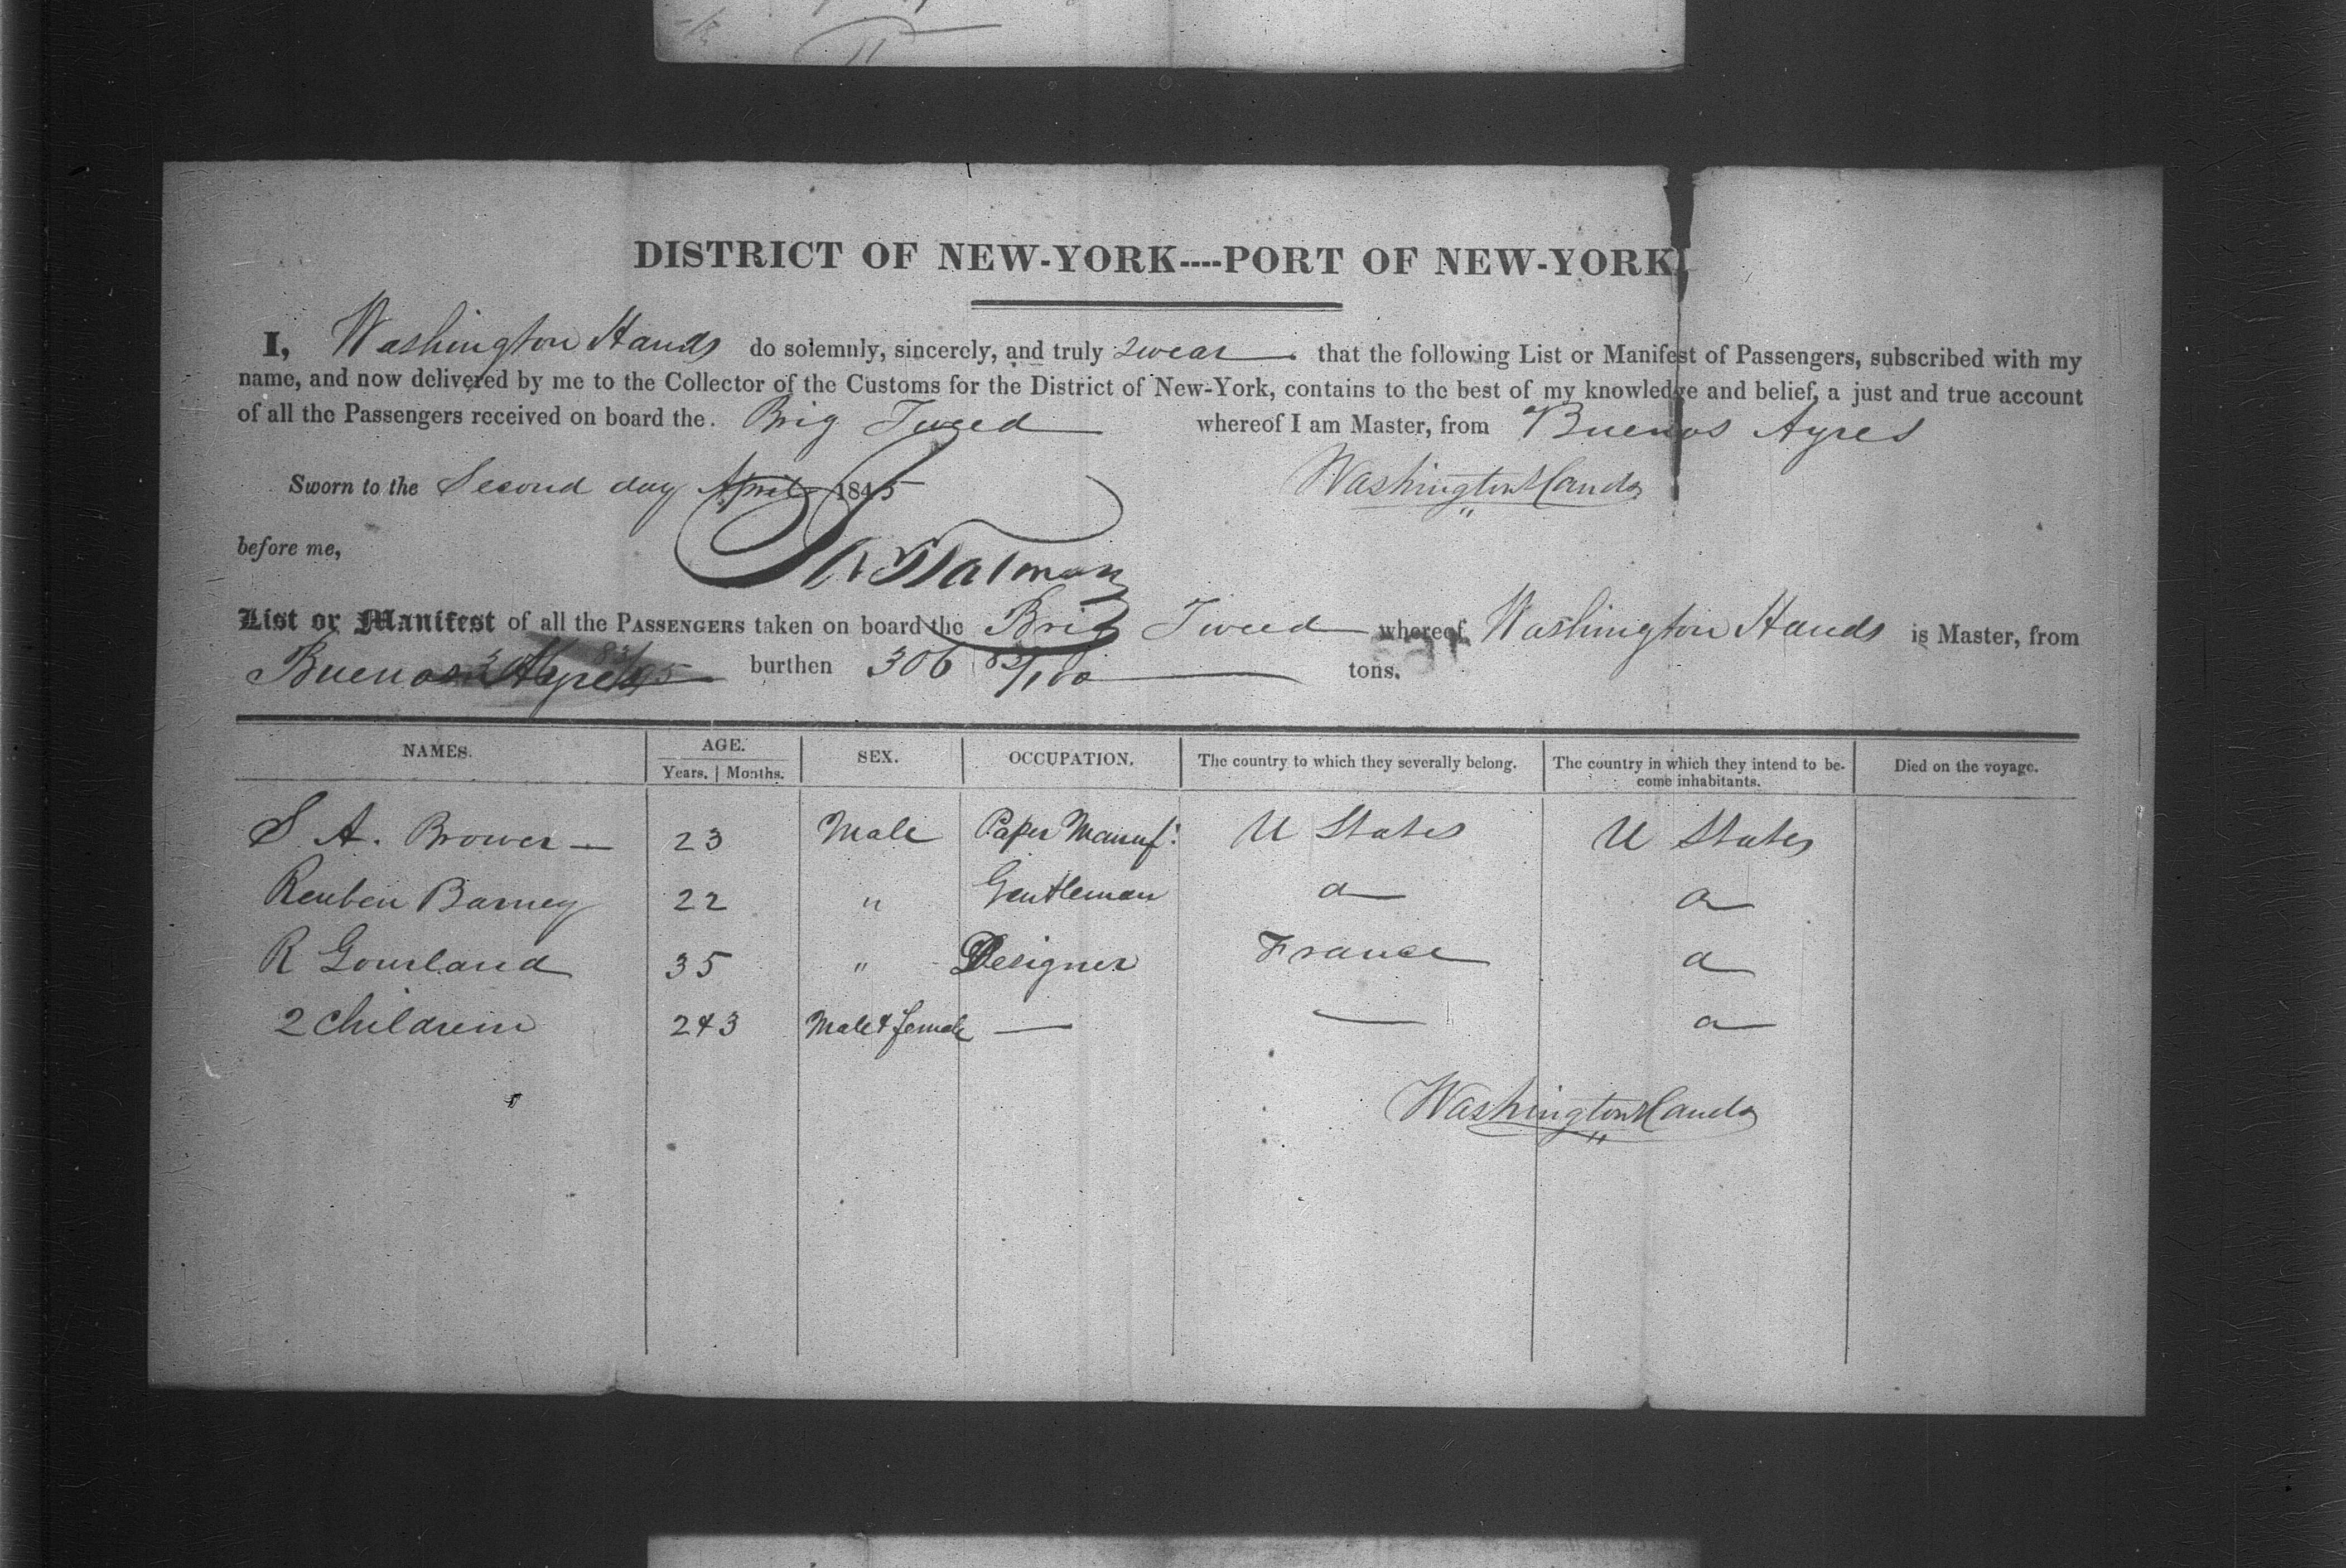 DISTRICT OF NEW-YORK----PORT OF NEW-YORK.
I, Washington Hands do solemnly, sincerely, and truly swear that the following List or Manifest of Passengers, subscribed with my
name, and now delivered by me to the Collector of the Customs for the District of New-York, contains to the best of my knowledge and belief, a just and true account
of all the Passengers received on board the Brig Tweed whereof I am Master, from Buenos Ayres
Sworn to the Second day April 1845 Washington Hands
before me,
List or Manifest of all the PASSENGERS taken on board the Brig Tweed whereof Washington Hands is Master, from
Buenos Ayres burthen 306 82/100 tons.
NAMES. AGE. SEX. OCCUPATION. The country to which they severally belong. The country in which they intend to be-
Years. | Months. come inhabitants. Died on the voyage.
S. A. Brower 23 Male Paper Manuf: U States U States
Reuben Barney 22 " Gentleman
R Gourland 35 " Designer France
2 Children 2 & 3 Male & female
Washington Hands